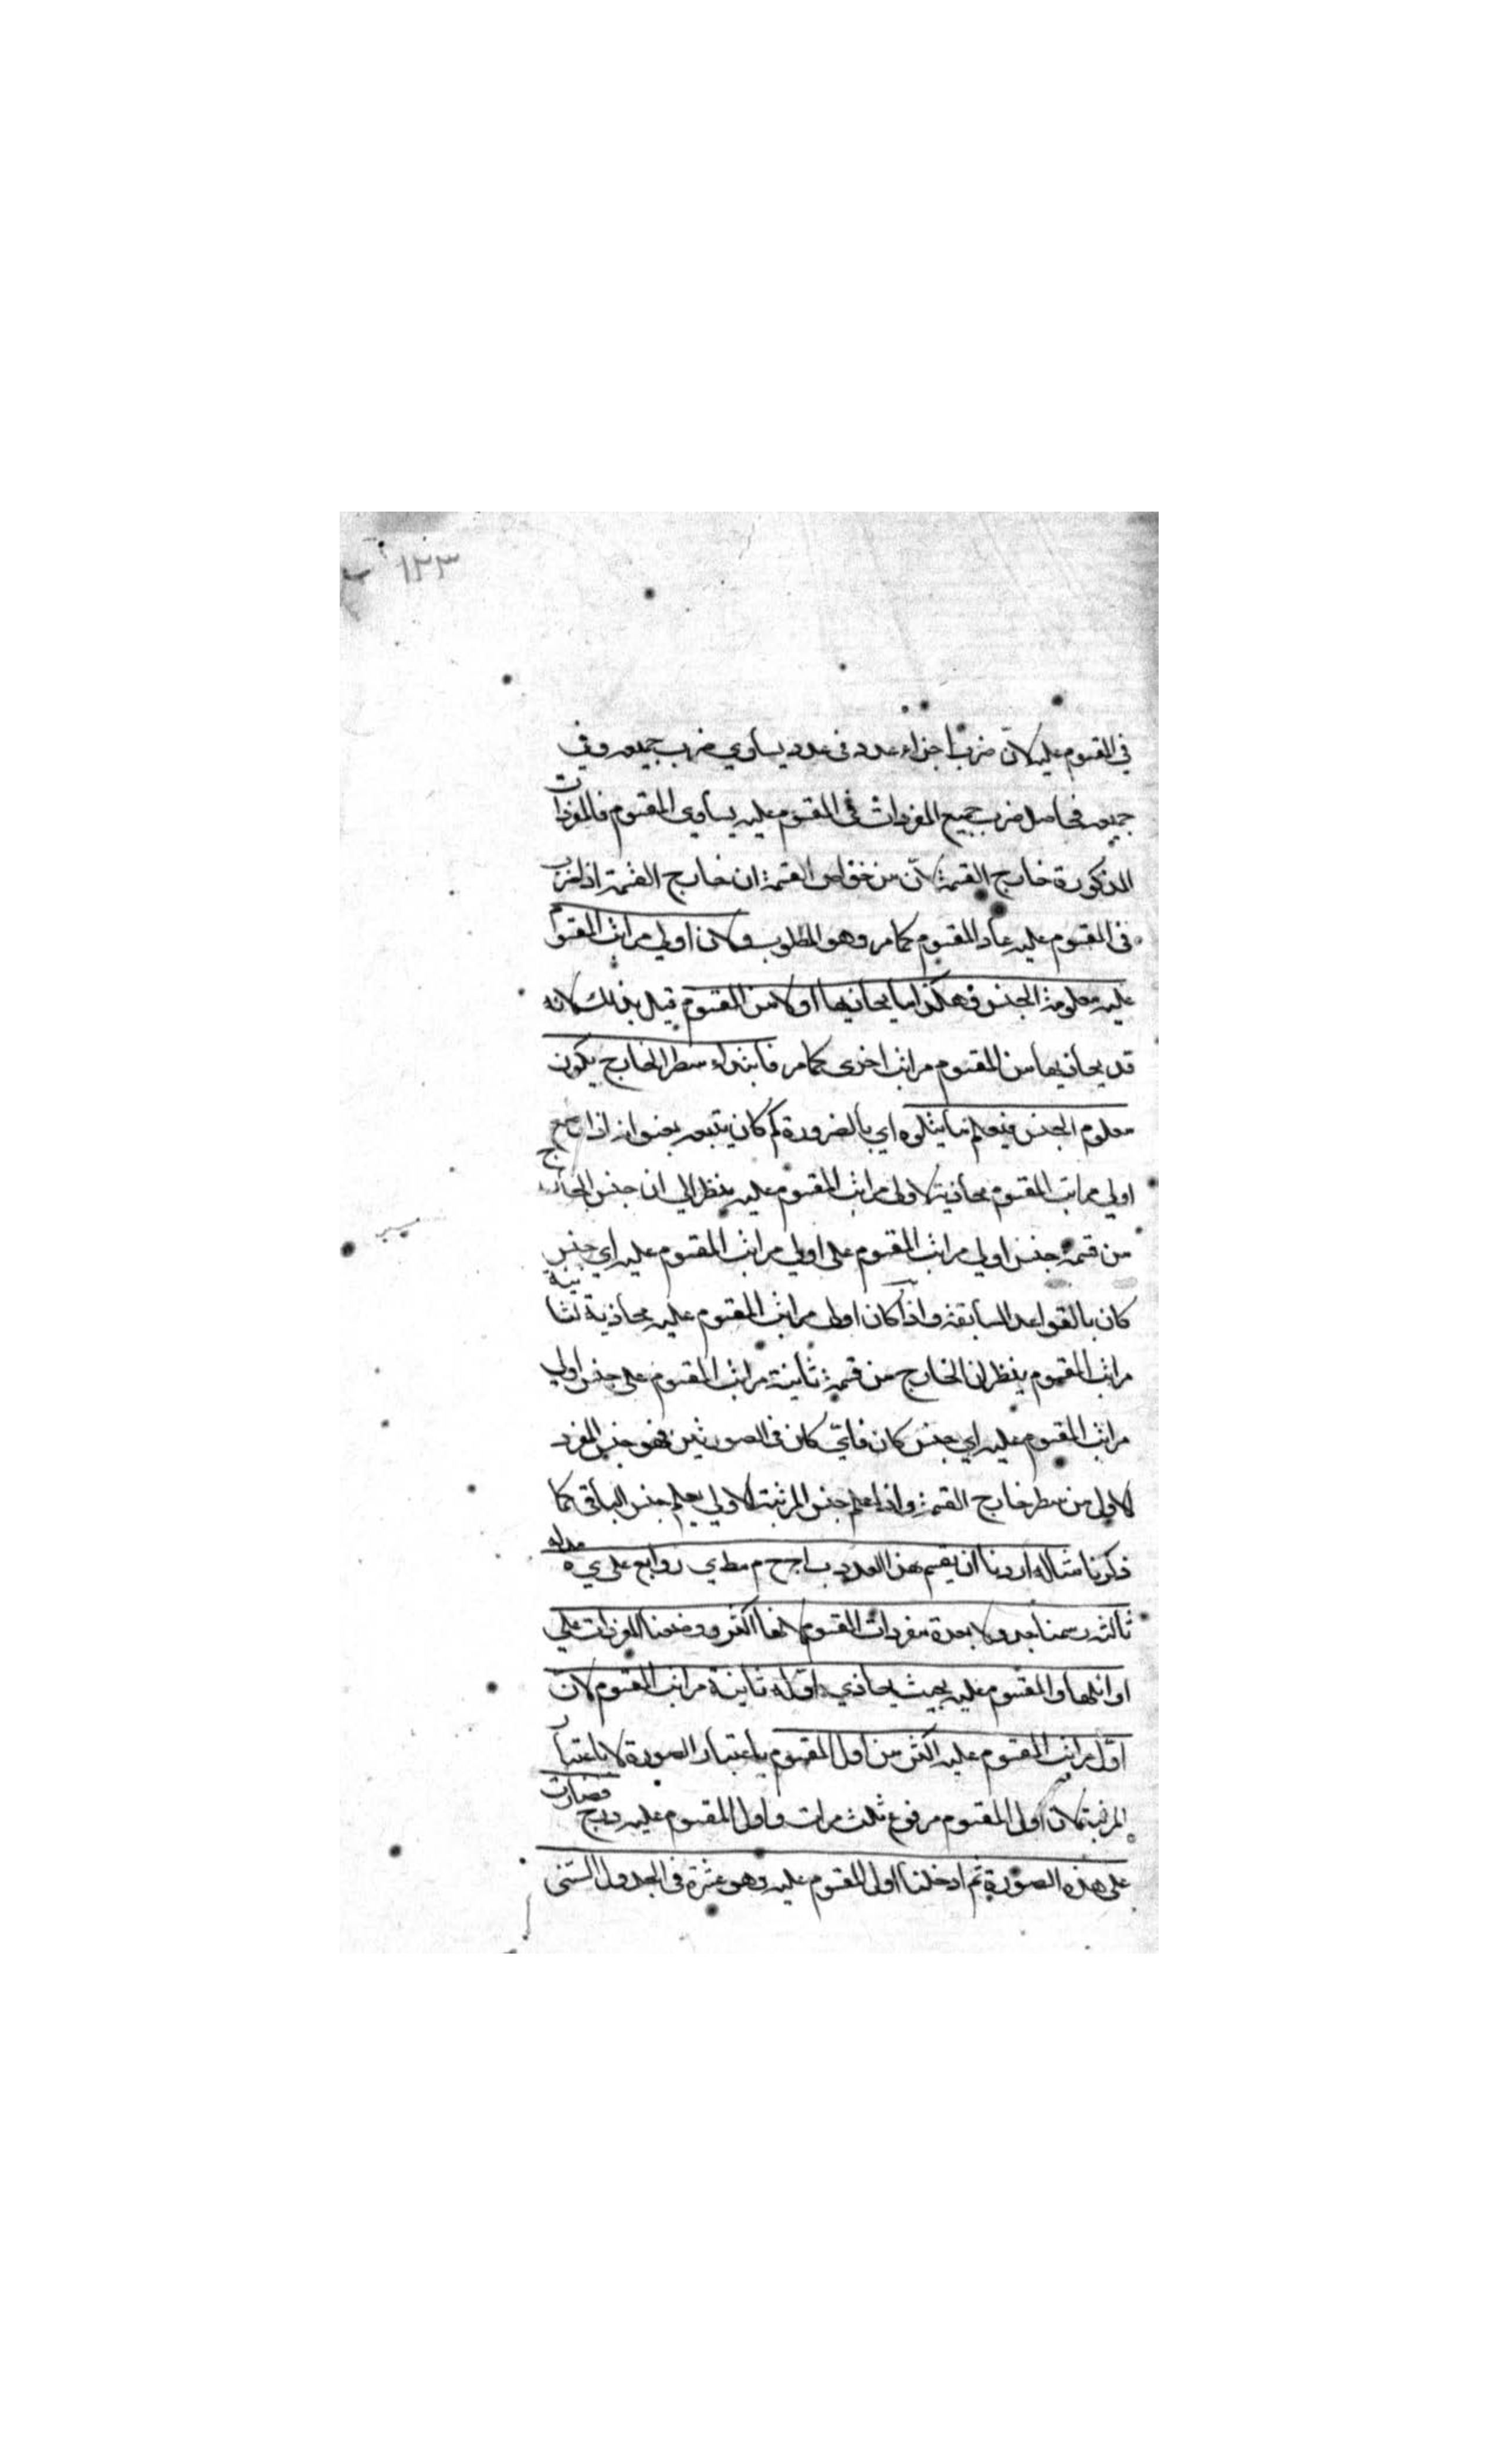 ١٢٣
في المقسوم عليه لان ضرب اجزاء عدد في عدد يساوي ضرب جميعه في
جميعه فحاصل ضرب جميع المفردات في المقسوم عليه يساوي المقسوم فالمفردات
المذكورة خارج القسمة لان من خواص القسمة ان خارج القسمة اذا ضرب
في المقسوم عليه عاد المقسوم كما مر وهو المطلوب ولان اولي مراتب المقسوم
عليه معلومة الجنس وهكذا ما يحاذيها اولا من المقسوم قيل بذلك لانه
قد يحاذيها من المقسوم مراتب اخرى كما مر فابتداء سطر الخارج يكون
معلوم الجنس فيعلم ما يتلوه اي بالضرورة كم كان يتبعه يعني انه اذا
اولي مراتب المقسوم محاذية لاولي مراتب المقسوم عليه ينظر الي ان جنس الخارج
من قسمة جنس اولي مراتب المقسوم على اولي مراتب المقسوم عليه اي جنس
كان بالقواعد السابقة واذا كان اولي مراتب المقسوم عليه محاذية لثانية
مراتب المقسوم ينظر ان الخارج من قسمة ثانية مراتب المقسوم على جنس اولي
مراتب المقسوم عليه اي جنس كان فاي كان في الصورتين فهو جنس المفرد
الاول من سطر خارج القسمة واذا علم جنس المرتبة الاولي يعلم جنس الباقي كما
ذكرنا مثاله اردنا ان يقسم هذا العدد ب ا ج ح م مط ي روابع على ي ه
ثالثه رسمنا جدولا بعدة مفردات المقسوم لانها اكثر ووضعنا المفردات على
اوائلها والمقسوم عليه بحيث يحاذي اوله ثانية مراتب المقسوم لان
اول مراتب المقسوم عليه اكثر من اول المقسوم باعتبار الصورة لا باعتبار
المرتبة لان اول المقسوم مرفوع ثلث مرات واول المقسوم عليه درج فصارت
على هذه الصورة ثم ادخلنا اول المقسوم عليه وهو عشرة في الجدول الستني